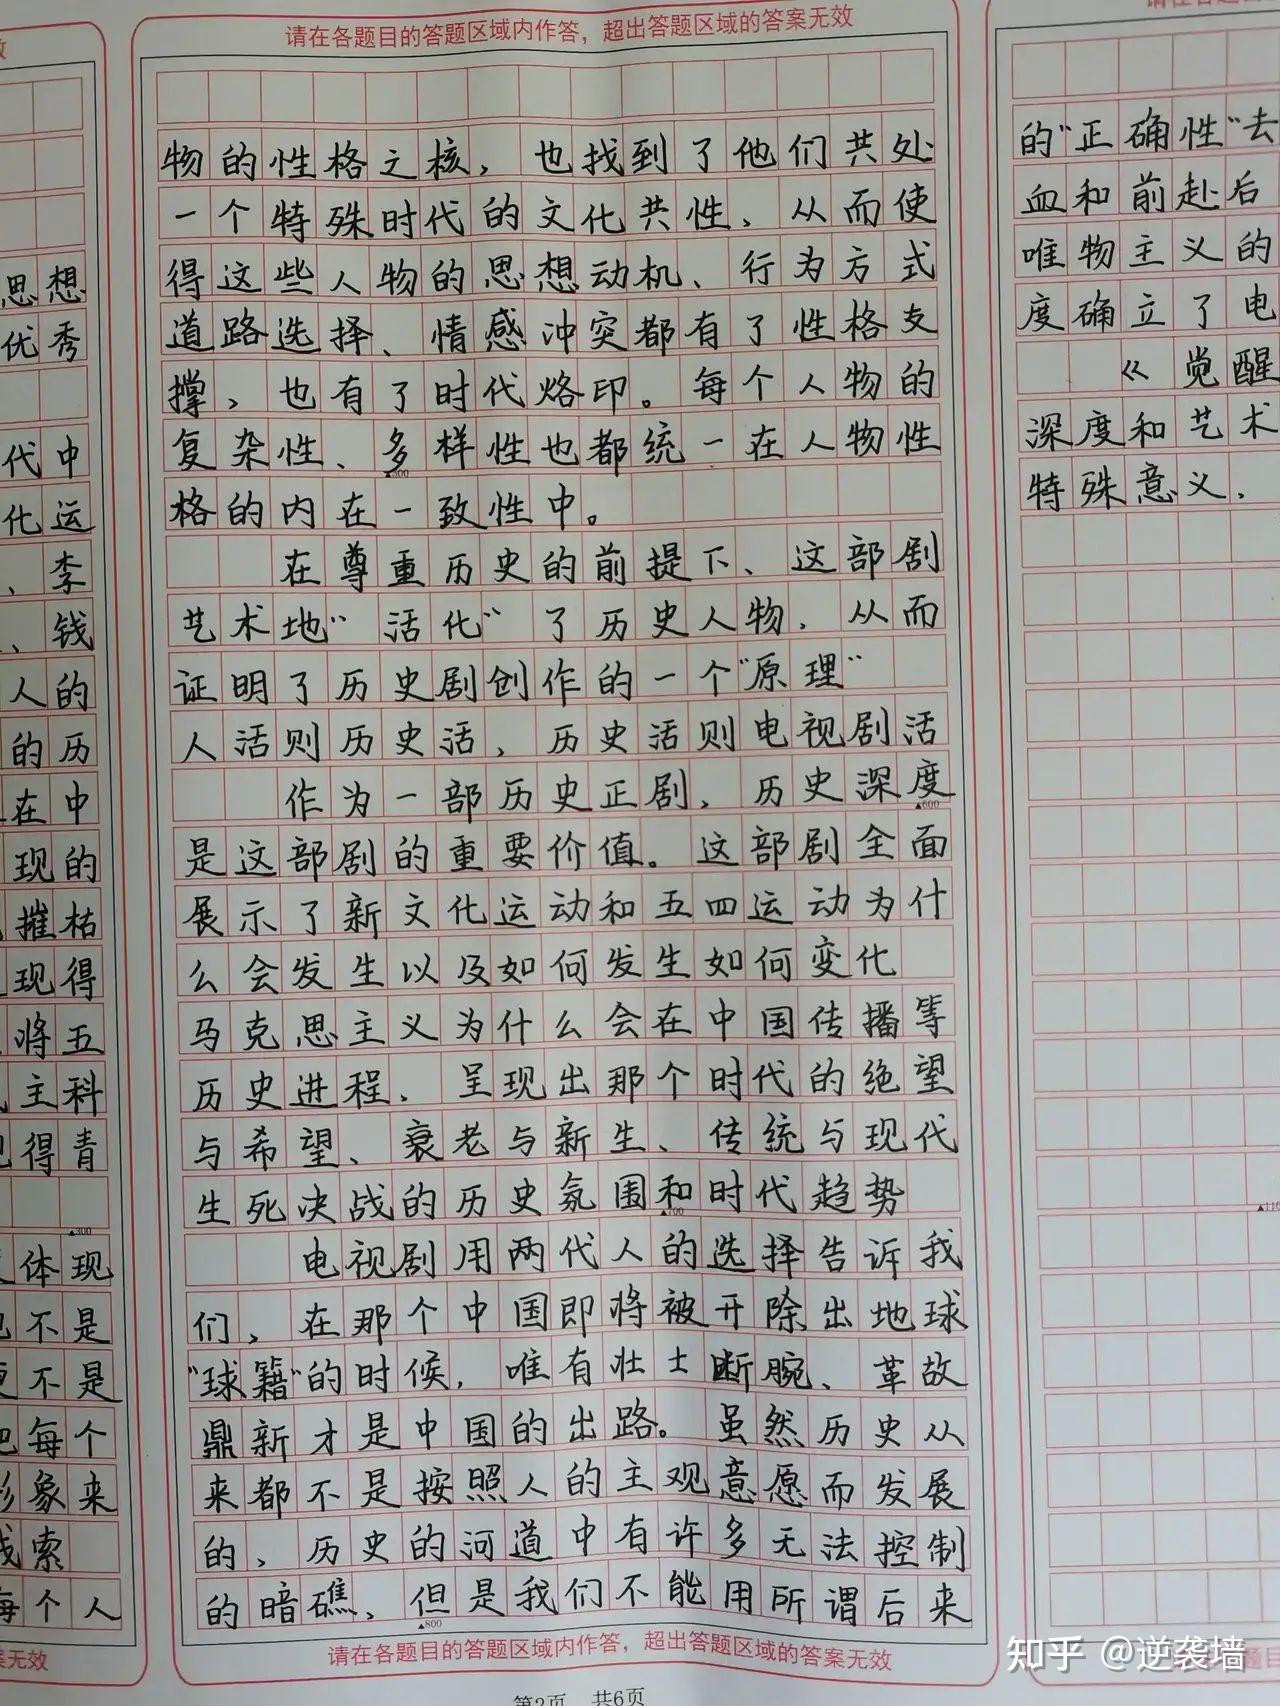 效
思想
优秀
代中
化运
、李
、钱
人的
的历
在中
现的
摧枯
现得
将五
主科
得青
▲300
体现
不是
不是
把每个
形象来
找索
每个人
答案无效
请在各题目的答题区域内作答，超出答题区域的答案无效
物的性格之核，也找到了他们共处
一个特殊时代的文化共性、从而使
得这些人物的思想动机、行为方式
道路选择、情感冲突都有了性格支
撑，也有了时代烙印。每个人物的
复杂性、多样性也都统一在人物性
▲500
格的内在一致性中。
在尊重历史的前提下、这部剧
艺术地“活化”了历史人物，从而
证明了历史剧创作的一个“原理”
人活则历史活，历史活则电视剧活
作为一部历史正剧，历史深度
▲600
是这部剧的重要价值。这部剧全面
展示了新文化运动和五四运动为什
么会发生以及如何发生如何变化
马克思主义为什么会在中国传播等
历史进程．呈现出那个时代的绝望
与希望、衰老与新生、传统与现代
生死决战的历史氛围和时代趋势
▲700
电视剧用两代人的选择告诉我
们，在那个中国即将被开除出地球
“球籍”的时候，唯有壮士断腕、革故
鼎新才是中国的出路。虽然历史从
来都不是按照人的主观意愿而发展
的、历史的河道中有许多无法控制
的暗礁，但是我们不能用所谓后来
▲800
请在各题目的答题区域内作答，超出答题区域的答案无效
第2页 共6页
的“正确性”去
血和前赴后
唯物主义的
度确立了电
《觉醒
深度和艺术
特殊意义．
▲110
知乎 @逆袭墙